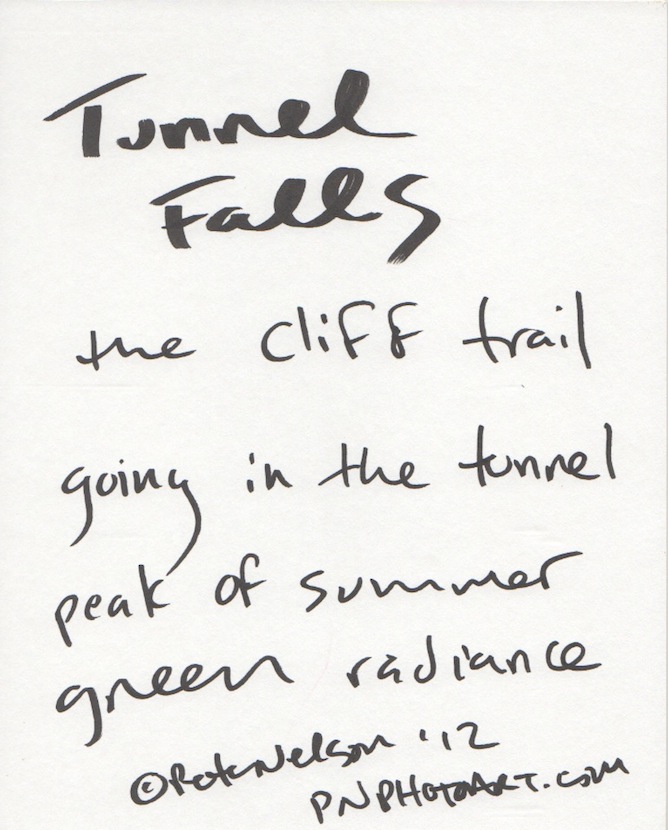 Tunnel
Falls
the cliff trail
going in the tunnel
peak of summer
green radiance
© Pete Nelson '12
PNPHOTOART.com